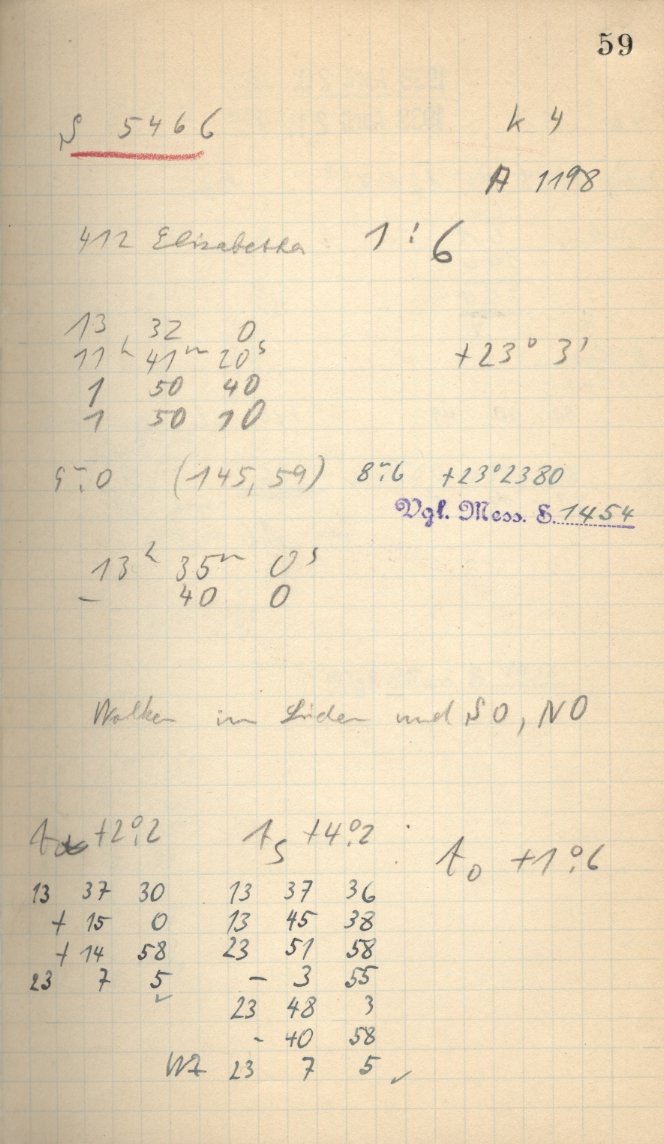 59
S 5466 k 4
A 1198
412 Elisabetha 1:6
13 32 0
11h 41m 20s +23° 3'
1 50 40
1 50 10
9m,0 (145, 59) 8m,6 +23°2380
Vgl. Mess. S. 1454
13h 35m 0s
- 40 0
Wolken im Süden und SO, NO
+2°,2 ts +4°,2 to +1°,6
13 37 30 13 37 36
+ 15 0 13 45 38
+ 14 58 23 51 58
23 7 5 - 3 55
✓ 23 48 3
- 40 58
WZ 23 7 5 ✓